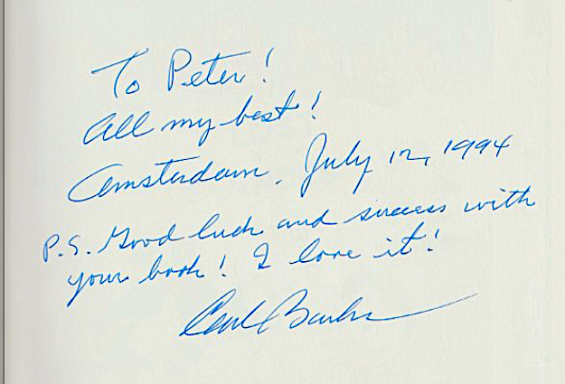 To Peter!
All my best!
Amsterdam, July 12, 1994
P.S. Good luck and success with
your book! I love it!
Carl Barks